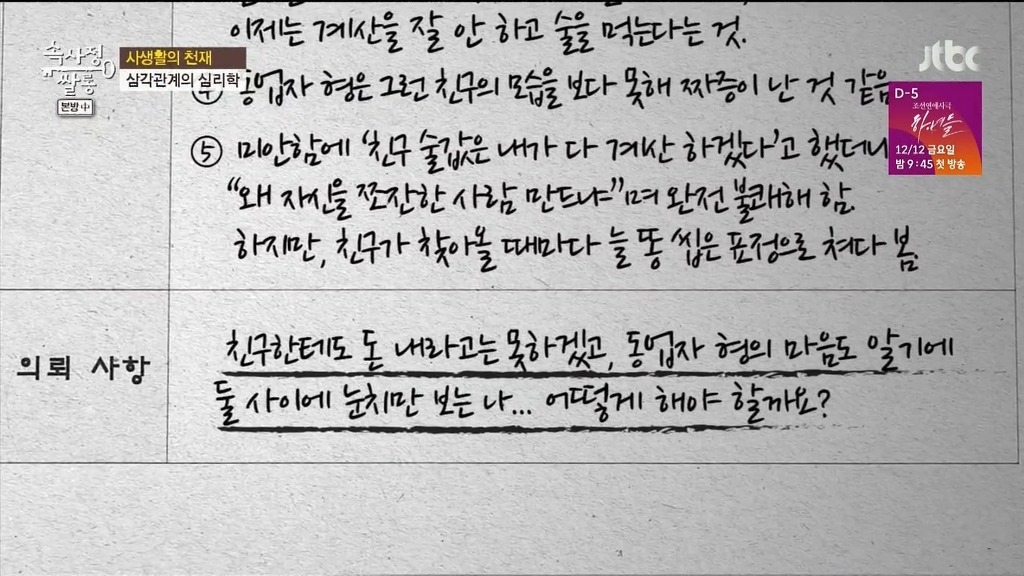 속사정
쌀롱
본방中
사생활의 천재
삼각관계의 심리학
jtbc
D-5
조선연애사극
하녀들
12/12 금요일
밤 9:45 첫 방송
이제는 계산을 잘 안 하고 술을 먹는다는 것.
④ 동업자 형은 그런 친구의 모습을 보다 못해 짜증이 난 것 같음
⑤ 미안함에 ‘친구 술값은 내가 다 계산 하겠다’고 했더니
“왜 자신을 쪼잔한 사람 만드냐”며 완전 불쾌해 함.
하지만, 친구가 찾아올 때마다 늘 똥 씹은 표정으로 쳐다 봄.
의뢰 사항
친구한테도 돈 내라고는 못하겠고, 동업자 형의 마음도 알기에
둘 사이에 눈치만 보는 나... 어떻게 해야 할까요?